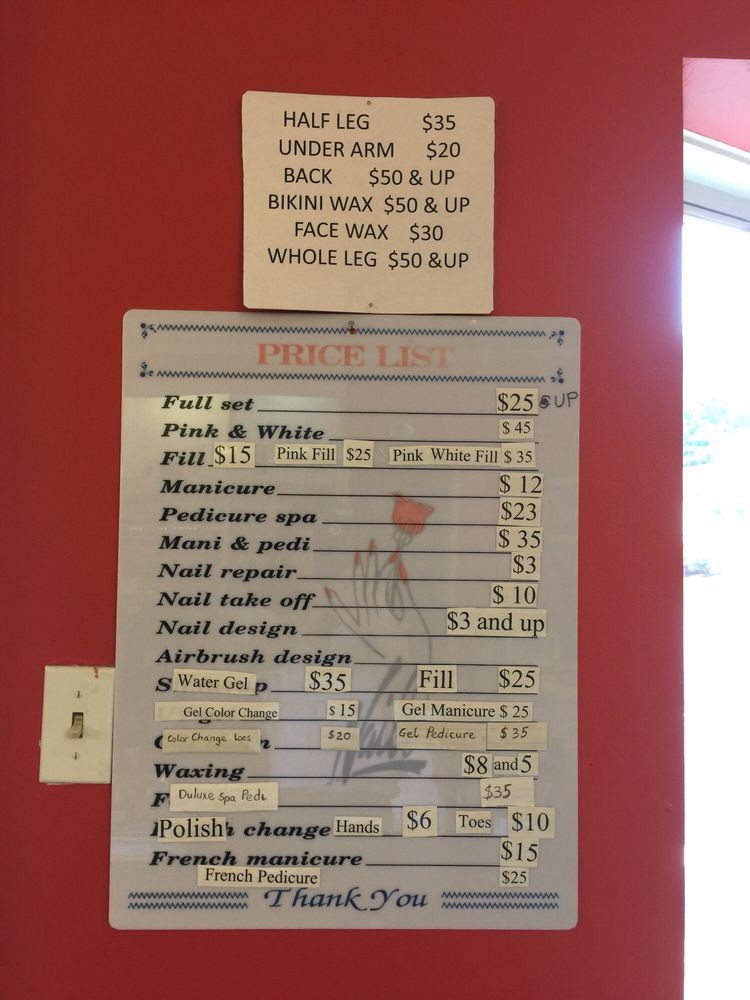 HALF LEG $35
UNDER ARM $20
BACK $50 & UP
BIKINI WAX $50 & UP
FACE WAX $30
WHOLE LEG $50 &UP
PRICE LIST
Full set $25 & UP
Pink & White $45
Fill $15 Pink Fill $25 Pink White Fill $35
Manicure $12
Pedicure spa $23
Mani & pedi $35
Nail repair $3
Nail take off $10
Nail design $3 and up
Airbrush design
Water Gel $35 Fill $25
Gel Color Change $15 Gel Manicure $25
Color Change toes $20 Gel Pedicure $35
Waxing $8 and 5
Duluxe Spa Pedi $35
Polish change Hands $6 Toes $10
French manicure $15
French Pedicure $25
Thank You